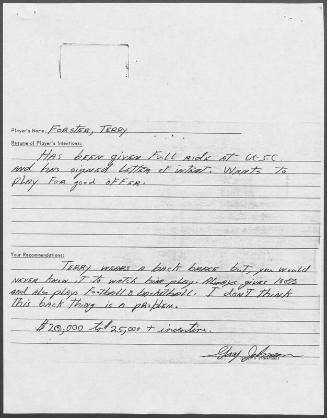 Player's Name: FORSTER, TERRY
Resume of Player's Intentions:
HAS BEEN given Full ride AT U.S.C.
AND HAS signed Letter of intent. WANTS TO
PLAY For good offer.
Your Recommendations:
TERRY wears a back brace but, you would
NEVER Know iT to watch him play. Always gives 100%
and also plays football & basketball. I don't think
this back thing is a problem.
$20,000 to 25,000 + incentive.